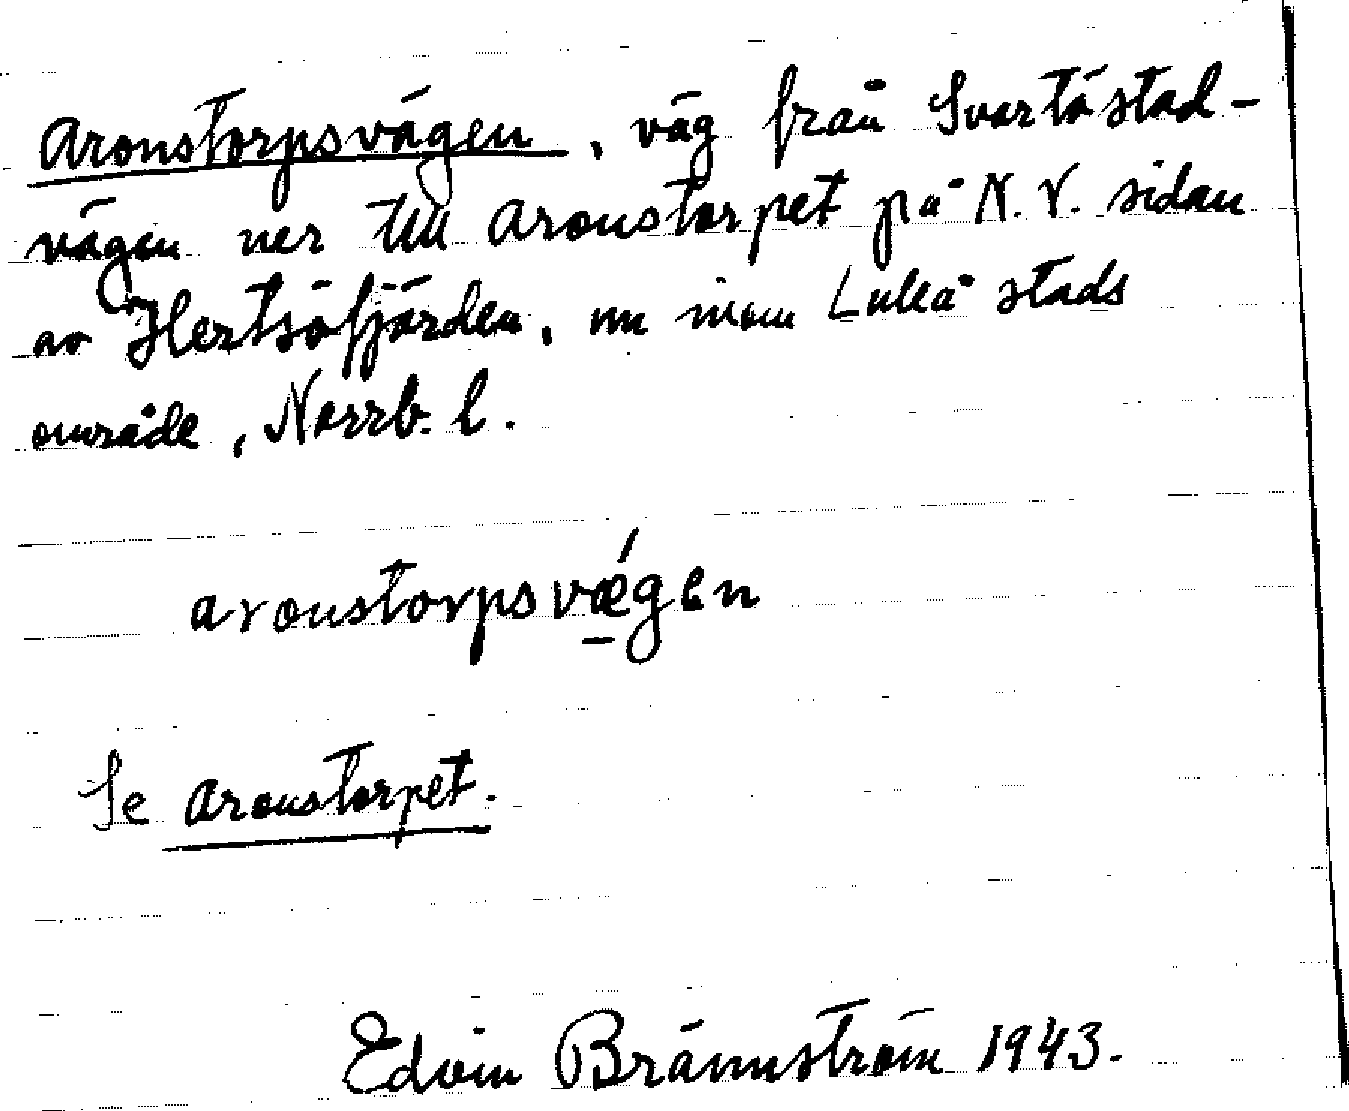 Aronstorpsvägen, väg från Svartöstad-
vägen ner till Aronstorpet på N.V. sidan
av Hertsöfjärden, nu inom Luleå stads
område, Norrb. l.
aronstorpsvǽgen
Se Aronstorpet.
Edvin Brännström 1943.